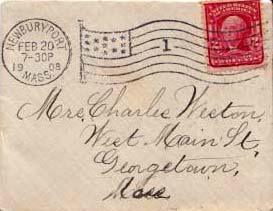 NEWBURYPORT
FEB 20
7-30P
1908
MASS.
1
Mrs. Charles Weston,
West Main St,
Georgetown,
Mass